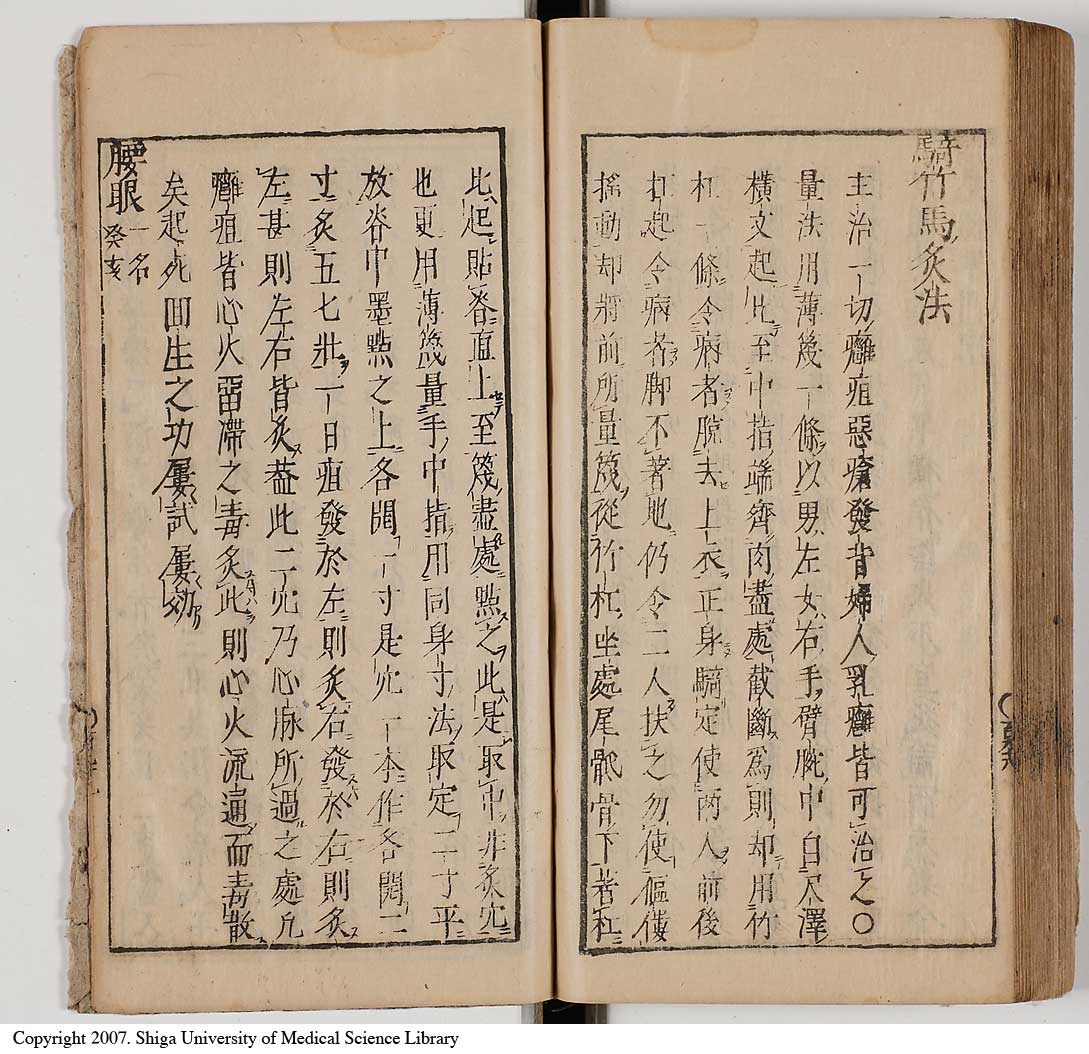 騎竹馬灸法
主治一切癰疽惡瘡發背婦人乳癰皆可治之〇
量法用薄篾一條以男左女右手臂腕中自尺澤
橫文起比至中指端齊肉盡處截斷爲則却用竹
杠一條令病者脫去上衣正身騎定使兩人前後
扛起令病者脚不著地仍令二人扶之勿使傴僂
搖動却將前所量篾從竹杠坐處尾骶骨下著杠
比起貼脊直上至篾盡處點之此是取中非灸穴
也更用薄篾量手中指用同身寸法取定二寸平
放脊中墨點之上各開一寸是穴一本作各開二
寸灸五七壯一日疽發於左則灸右發於右則灸
左甚則左右皆灸蓋此二穴乃心脉所過之處凡
癰疽皆心火畱滯之毒灸此則心火流通而毒散
矣起死回生之功屢試屢効
腰眼一名癸亥
Copyright 2007. Shiga University of Medical Science Library